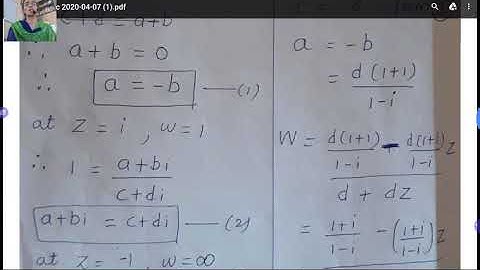 c 2020-04-07 (1).pdf
c+d = a+b
∴ a+b = 0
∴ a = -b —(1)
at z = i , w = 1
∴ 1 = a+bi
c+di
a+bi = c+di —(2)
at z = -1, w = ∞
a = -b
= d(1+i)
1-i
W = d(1+i) - d(1+i) z
1-i 1-i
d + dz
= 1+i - (1+i) z
1-i 1-i